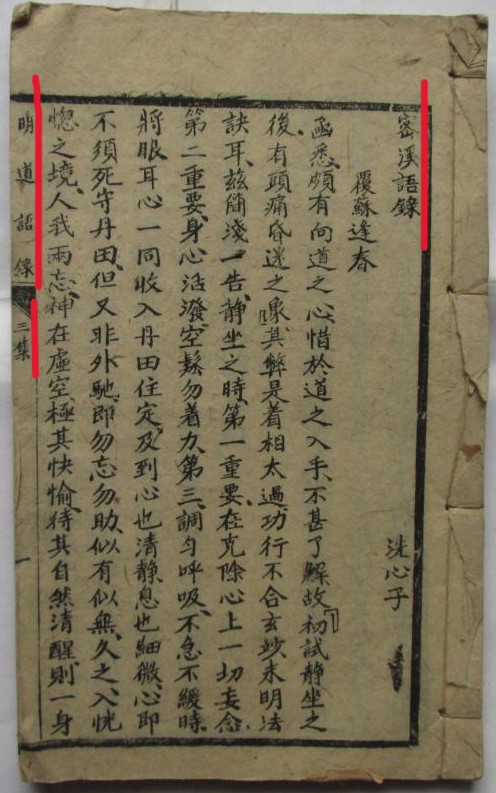 密溪語錄
洗心子
覆蘇逢春
函悉頗有向道之心惜於道之入手不甚了解故初試靜坐之
後有頭痛昏迷之象其弊是着相太過功行不合玄妙未明法
訣耳茲簡淺一告靜坐之時第一重要在克除心上一切妄念
第二重要身心活潑空鬆勿着力第三調勻呼吸不急不緩時
將眼耳心一同收入丹田住定及到心也清靜息也細微心即
不須死守丹田但又非外馳即勿忘勿助似有似無久之入恍
惚之境人我兩忘神在虛空極其快愉待其自然清醒則一身
明道語錄
三集
一